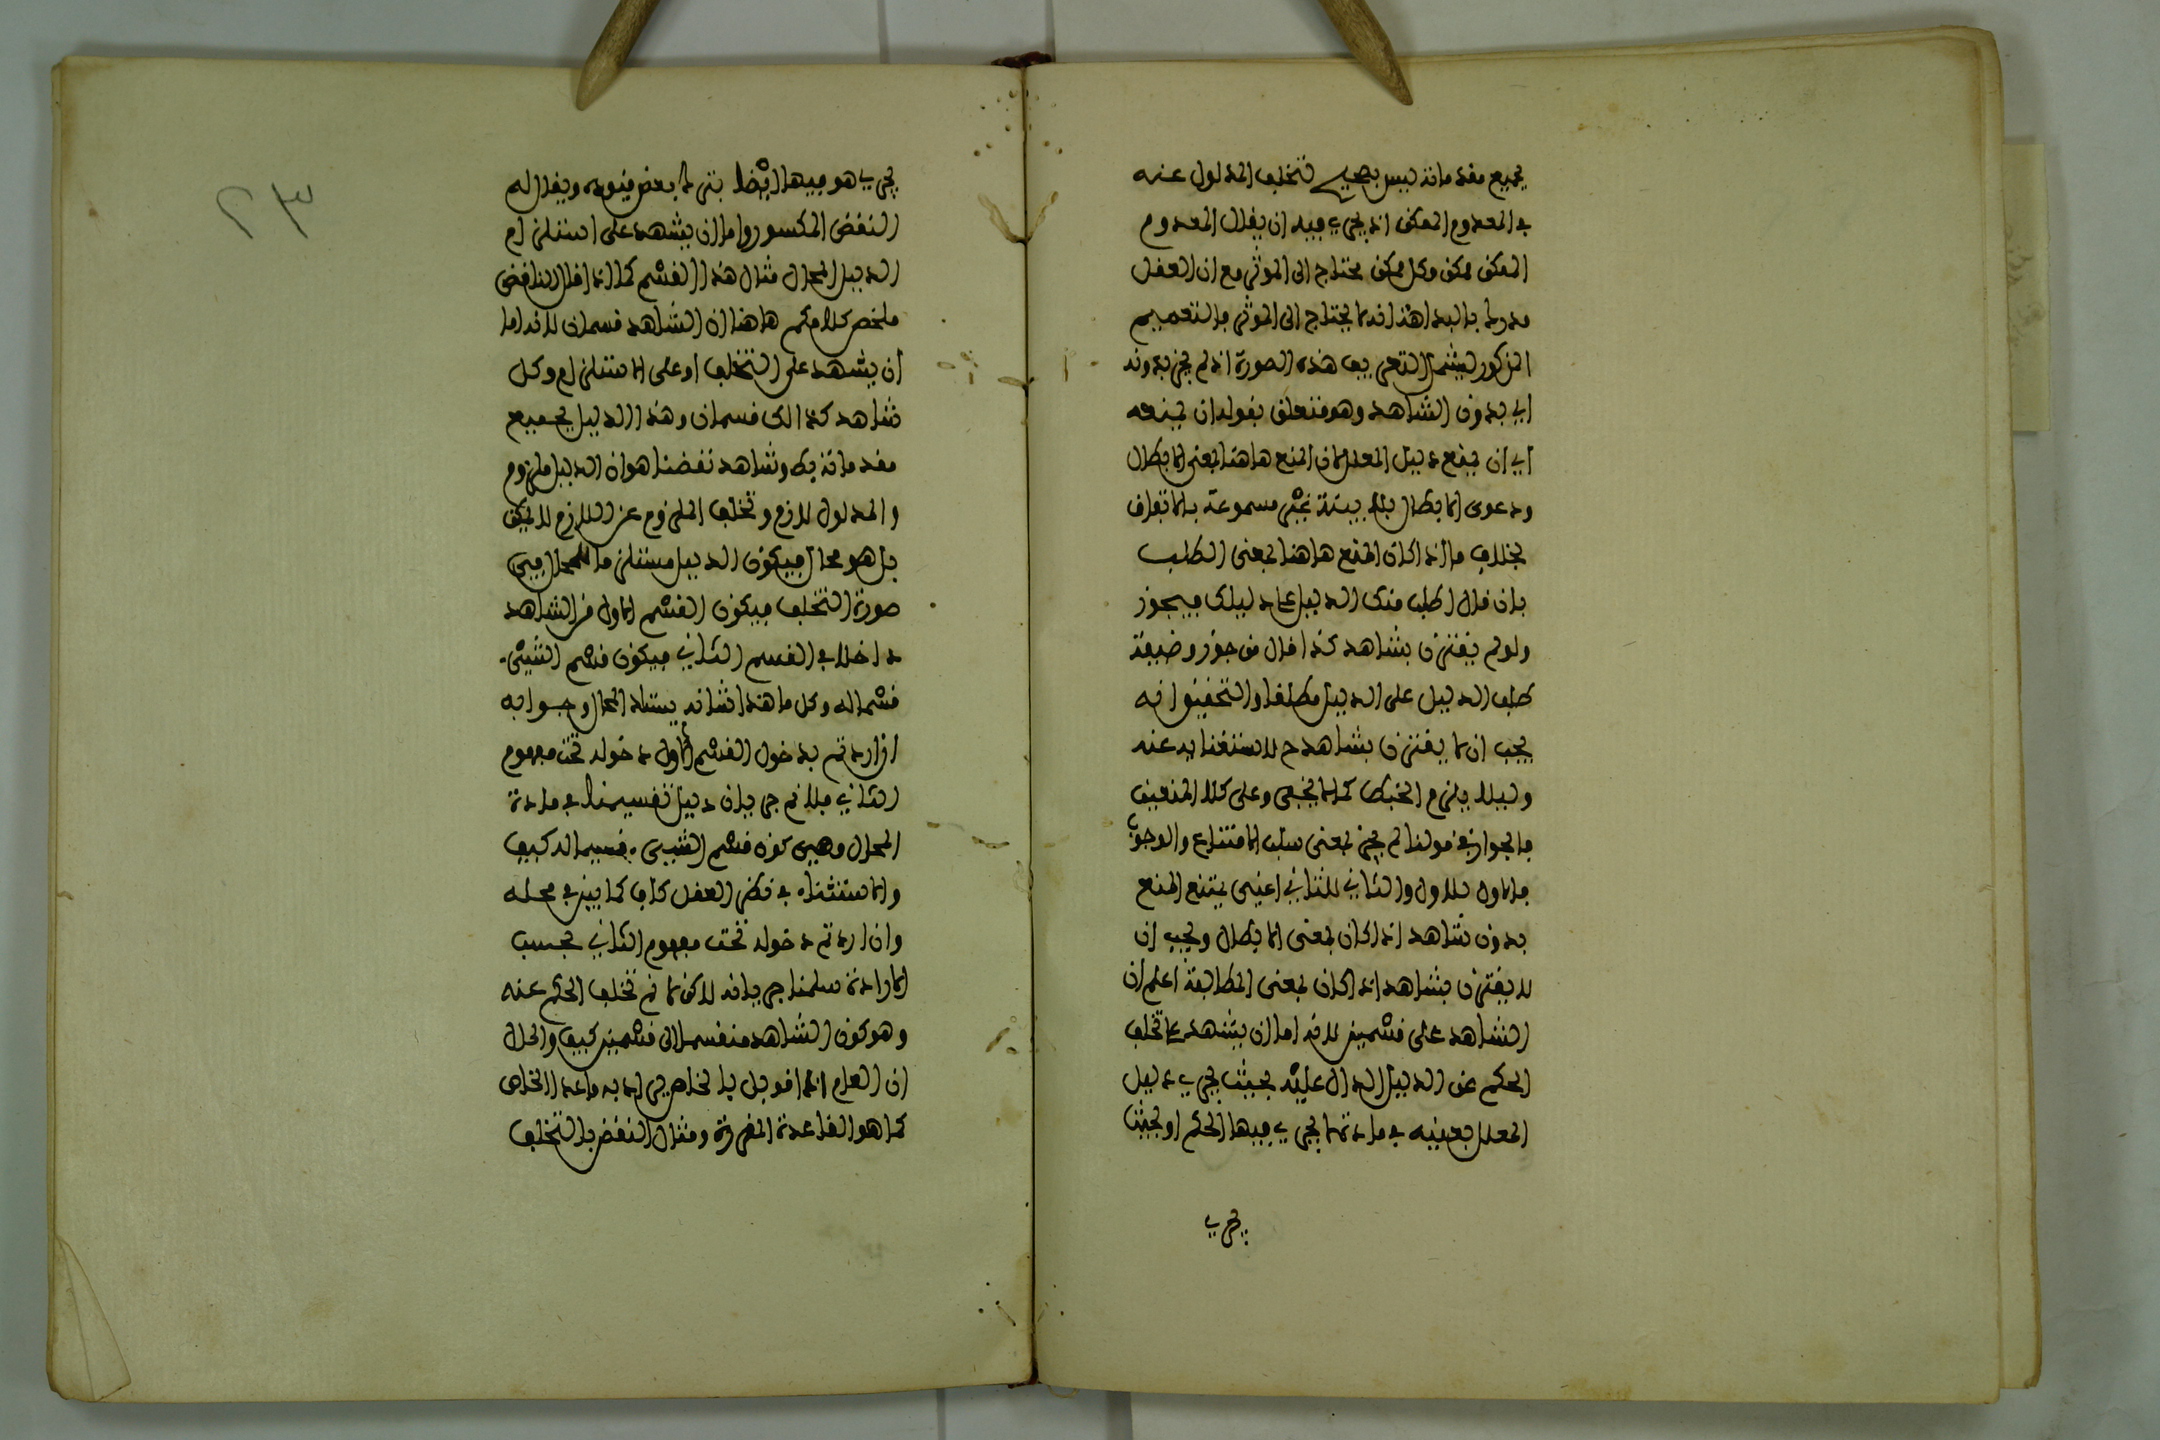 بجميع مقدماته ليس بصحيح لتخلف المدلول عنه
في المعدوم الممكن اذ يجري فيه ان يقال المعدوم
الممكن ممكن وكل ممكن محتاج الى الموثر مع ان العقل
مدرك بالبداهة انه لا يحتاج الى الموثر والتعميم
المذكور ليشمل التعريف هذه الصورة اذ لم يجز بدونه
اي بدون الشاهد وهو متعلق بقوله ان يمنعه
اي ان يمنع دليل المعلل لان المنع هاهنا بمعنى الابطال
ودعوى الابطال بلا بينة غير مسموعة بالاتفاق
بخلاف ما اذا كان المنع هاهنا بمعنى الطلب
بان قال اطلب منك الدليل على دليلك فيجوز
ولو لم يقترن بشاهد كذا قال من جوز وضيفة
طلب الدليل على الدليل مطلقا والتحقيق انه
يجب ان لا يقترن بشاهد ح للاستغناء به عنه
وليلا يلزم الخبط كما لا يخفى وعلى كلا المنعين
فالجواز في قولنا لم يجز بمعنى سلب الامتناع والوجوب
فالاول للاول والثاني للثاني اعني يمتنع المنع
بدون شاهد اذا كان بمعنى الابطال ويجب ان
لا يقترن بشاهد اذا كان بمعنى المطالبة اعلم ان
الشاهد على قسمين لانه اما ان يشهد على تخلف
الحكم عن الدليل الدال عليه بحيث يجري دليل
المعلل بعينه في مادة لا يجري فيها الحكم او بحيث
يجري
٢٣
يجري هو فيها ايضا بترك بعض قيوده ويقال له
النقض المكسور واما ان يشهد على استلزام
الدليل المحال مثال هذا القسم كما اذا قال الناقض
ملخص كلامكم هاهنا ان الشاهد قسمان لانه اما
ان يشهد على التخلف او على الاستلزام وكل
شاهد كذالك قسمان وهذا الدليل بجميع
مقدماته بط وشاهد نقضنا هو ان الدليل ملزوم
والمدلول لازم وتخلف الملزوم عن اللازم لا يمكن
بل هو محال فيكون الدليل مستلزما للمحال في
صورة التخلف فيكون القسم الاول من الشاهد
داخلا في القسم الثاني فيكون قسم الشيء
قسما له وكل ما هذا شانه يستلزم المحال وجوابه
ان اردتم بدخول القسم الاول دخوله تحت مفهوم
الثاني فلا نم جريان دليل تقسيمنا في مادة
المحال وهي كون قسم الشيء قسيما له كيف
والاستثناء في نظر العقل كاف كما بين في محله
وان اردتم دخوله تحت مفهوم الثاني بحسب
الارادة سلمنا جريانه لاكن لا نم تخلف الحكم عنه
وهو كون الشاهد منقسما الى قسمين كيف والحال
ان العام اذا قوبل بالخاص يراد به ما عدا الخاص
كما هو القاعدة المقررة ومثال النقض بالتخلف